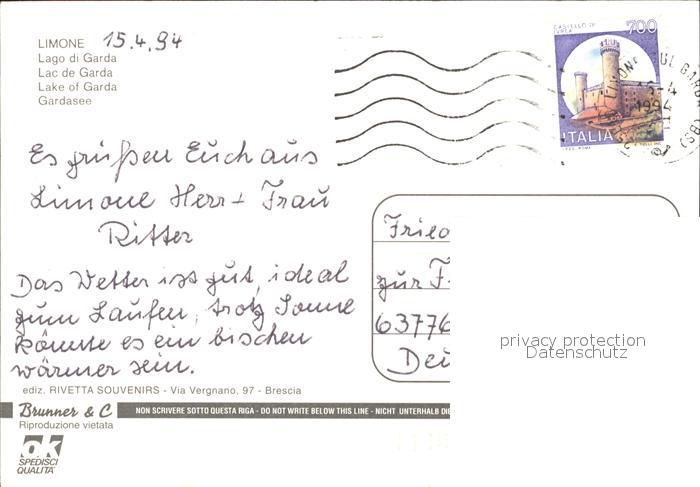 LIMONE 15.4.94
Lago di Garda
Lac de Garda
Lake of Garda
Gardasee
CASTELLO DI IVREA
700
ITALIA
Es grüßen Euch aus
Limone Herr + Frau
Ritter
Das Wetter ist gut, ideal
zum Laufen, trotz Sonne
könnte es ein bischen
wärmer sein.
Fried
zur F
63776
Deu
privacy protection
Datenschutz
ediz. RIVETTA SOUVENIRS - Via Vergnano, 97 - Brescia
Brunner & C
NON SCRIVERE SOTTO QUESTA RIGA - DO NOT WRITE BELOW THIS LINE - NICHT UNTERHALB DIE
Riproduzione vietata
ok
SPEDISCI
QUALITA'